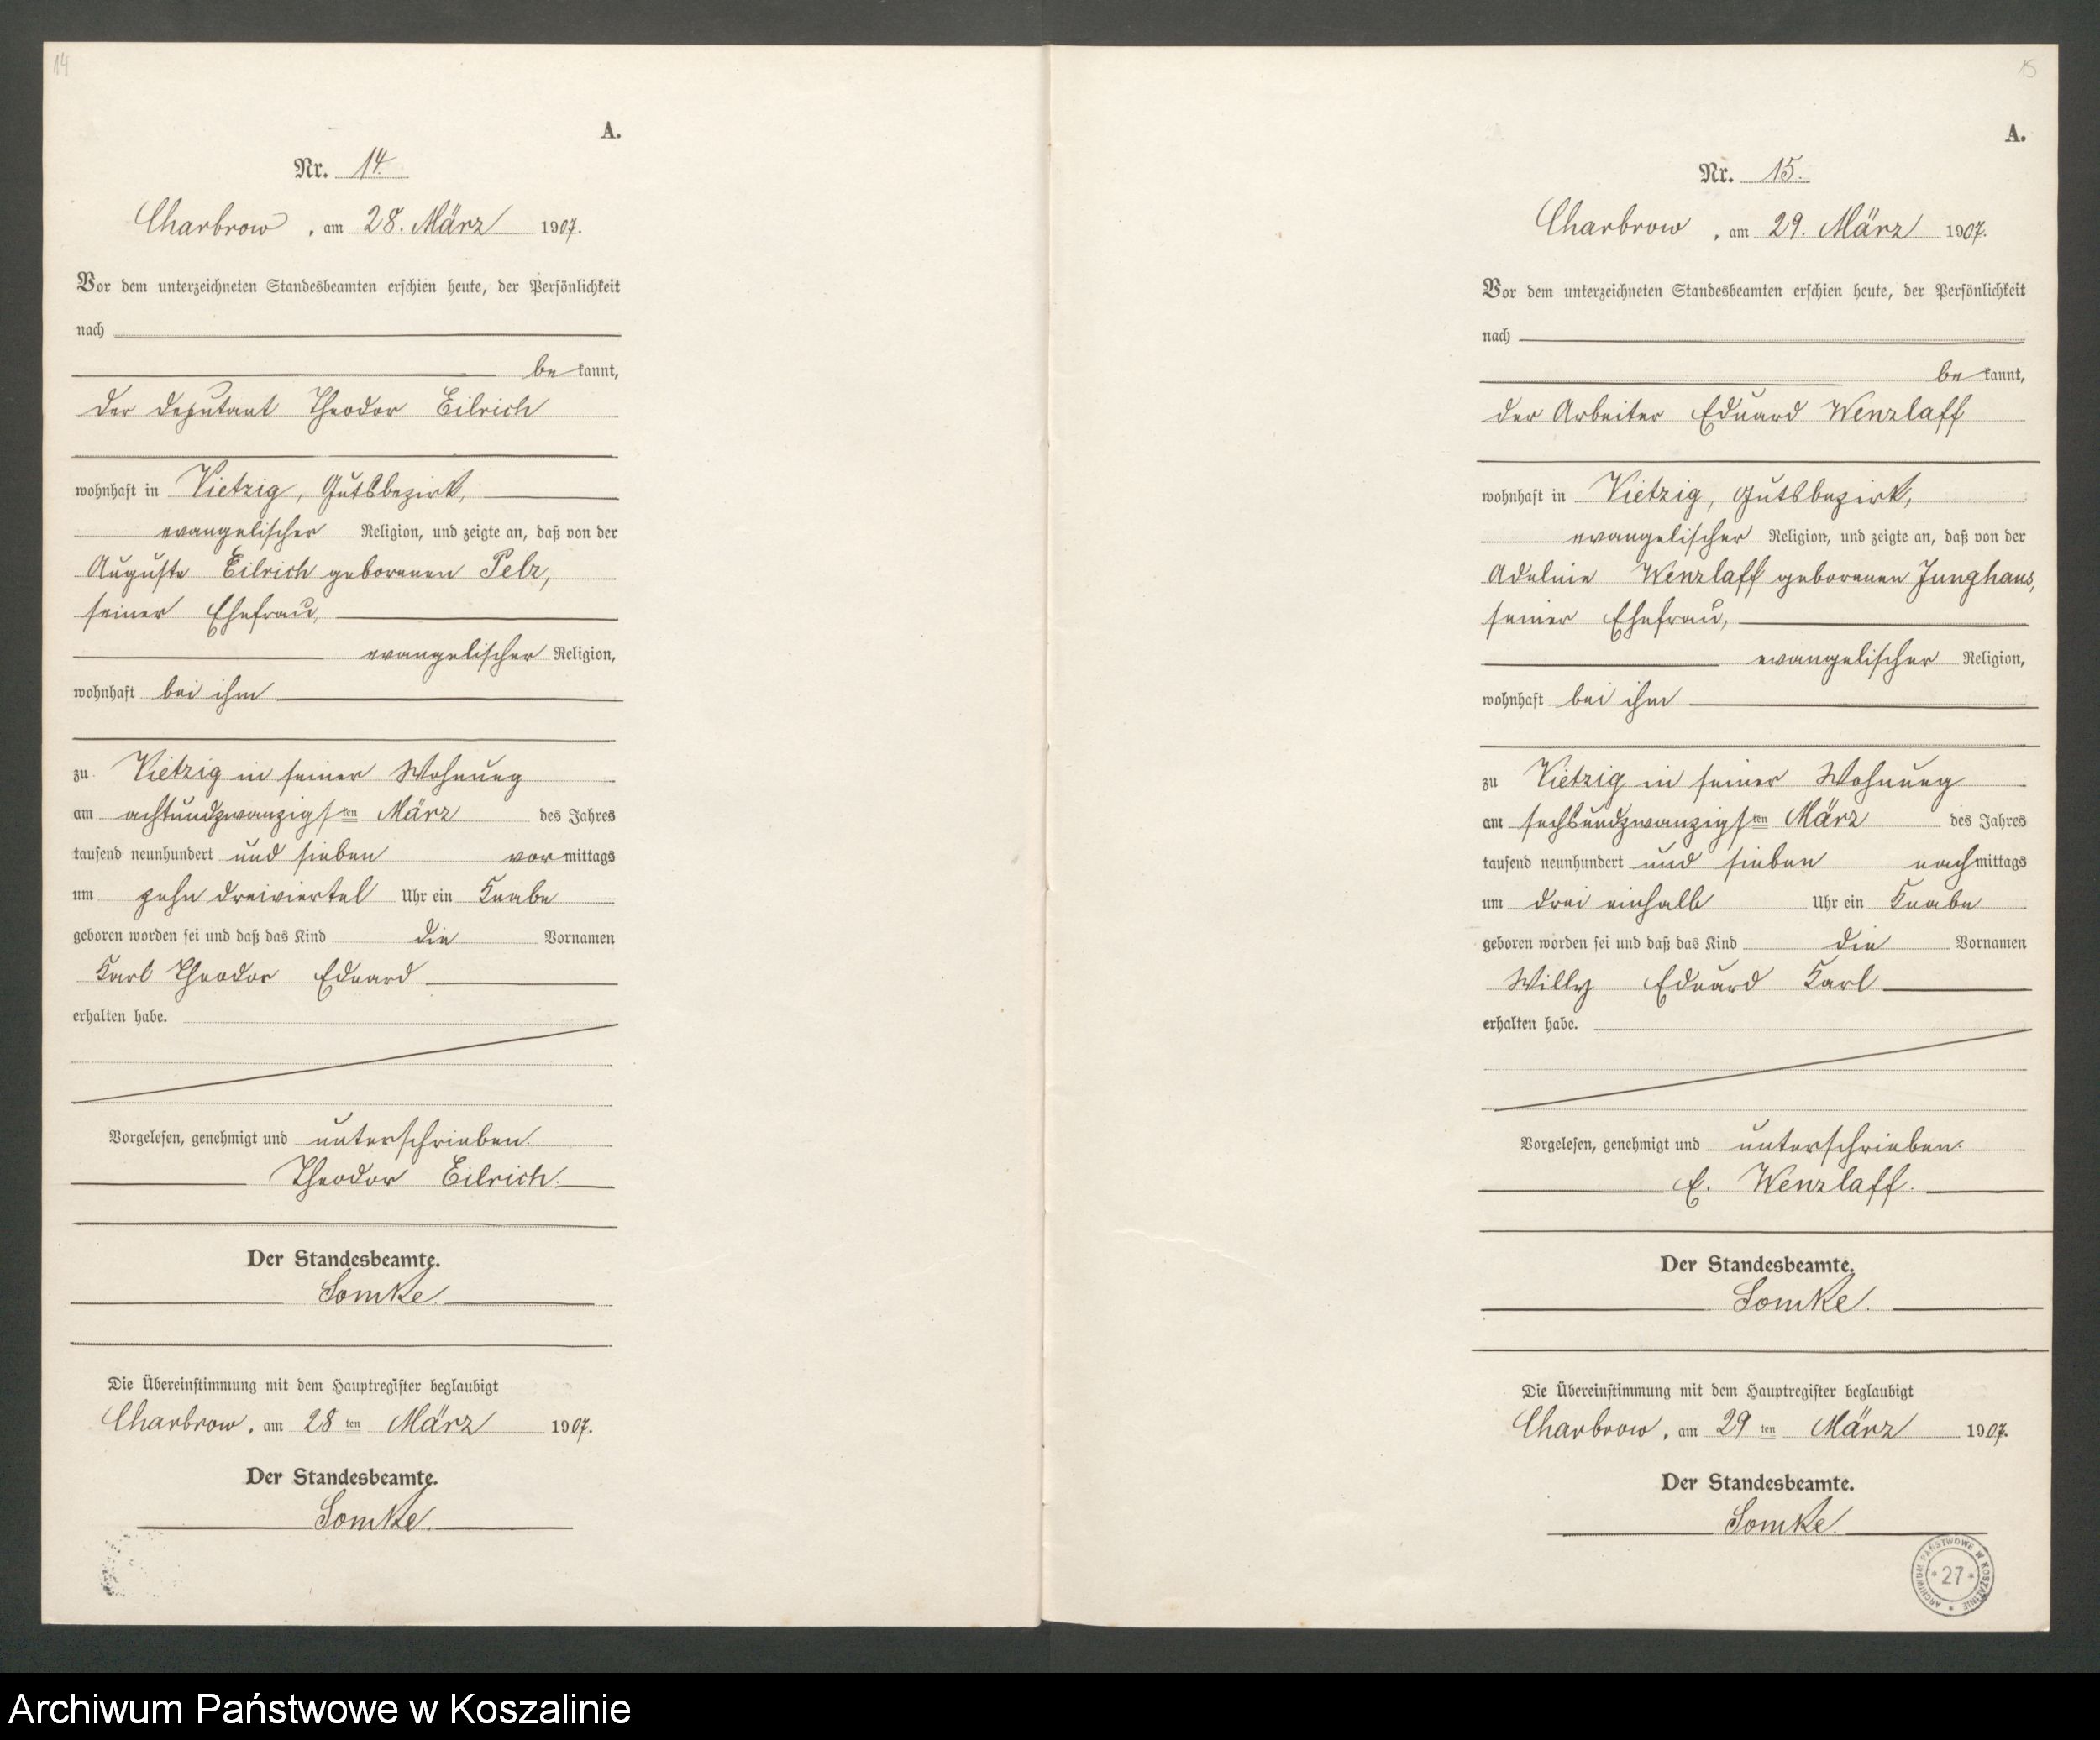 14
A.
Nr. 14.
Charbrow, am 28. März 1907.
Vor dem unterzeichneten Standesbeamten erschien heute, der Persönlichkeit
nach
be kannt,
der Deputant Theodor Eilrich
wohnhaft in Vietzig, Gutsbezirk,
evangelischer Religion, und zeigte an, daß von der
Auguste Eilrich geborenen Pelz,
seiner Ehefrau,
evangelischer Religion,
wohnhaft bei ihm
zu Vietzig in seiner Wohnung
am achtundzwanzigsten März des Jahres
tausend neunhundert und sieben vormittags
um zehn dreiviertel Uhr ein Knabe
geboren worden sei und daß das Kind die Vornamen
Karl Theodor Eduard
erhalten habe.
Vorgelesen, genehmigt und unterschrieben.
Theodor Eilrich.
Der Standesbeamte.
Somke.
Die Übereinstimmung mit dem Hauptregister beglaubigt
Charbrow, am 28 ten März 1907.
Der Standesbeamte.
Somke.
15
A.
Nr. 15.
Charbrow, am 29. März 1907.
Vor dem unterzeichneten Standesbeamten erschien heute, der Persönlichkeit
nach
be kannt,
der Arbeiter Eduard Wenzlaff
wohnhaft in Vietzig, Gutsbezirk,
evangelischer Religion, und zeigte an, daß von der
Adeline Wenzlaff geborenen Junghans,
seiner Ehefrau,
evangelischer Religion,
wohnhaft bei ihm
zu Vietzig in seiner Wohnung
am sechsundzwanzigsten März des Jahres
tausend neunhundert und sieben nachmittags
um drei einhalb Uhr ein Knabe
geboren worden sei und daß das Kind die Vornamen
Willy Eduard Karl
erhalten habe.
Vorgelesen, genehmigt und unterschrieben.
E. Wenzlaff.
Der Standesbeamte.
Somke.
Die Übereinstimmung mit dem Hauptregister beglaubigt
Charbrow, am 29 ten März 1907.
Der Standesbeamte.
Somke.
ARCHIWUM PAŃSTWOWE W KOSZALINIE
* 27 *
Archiwum Państwowe w Koszalinie